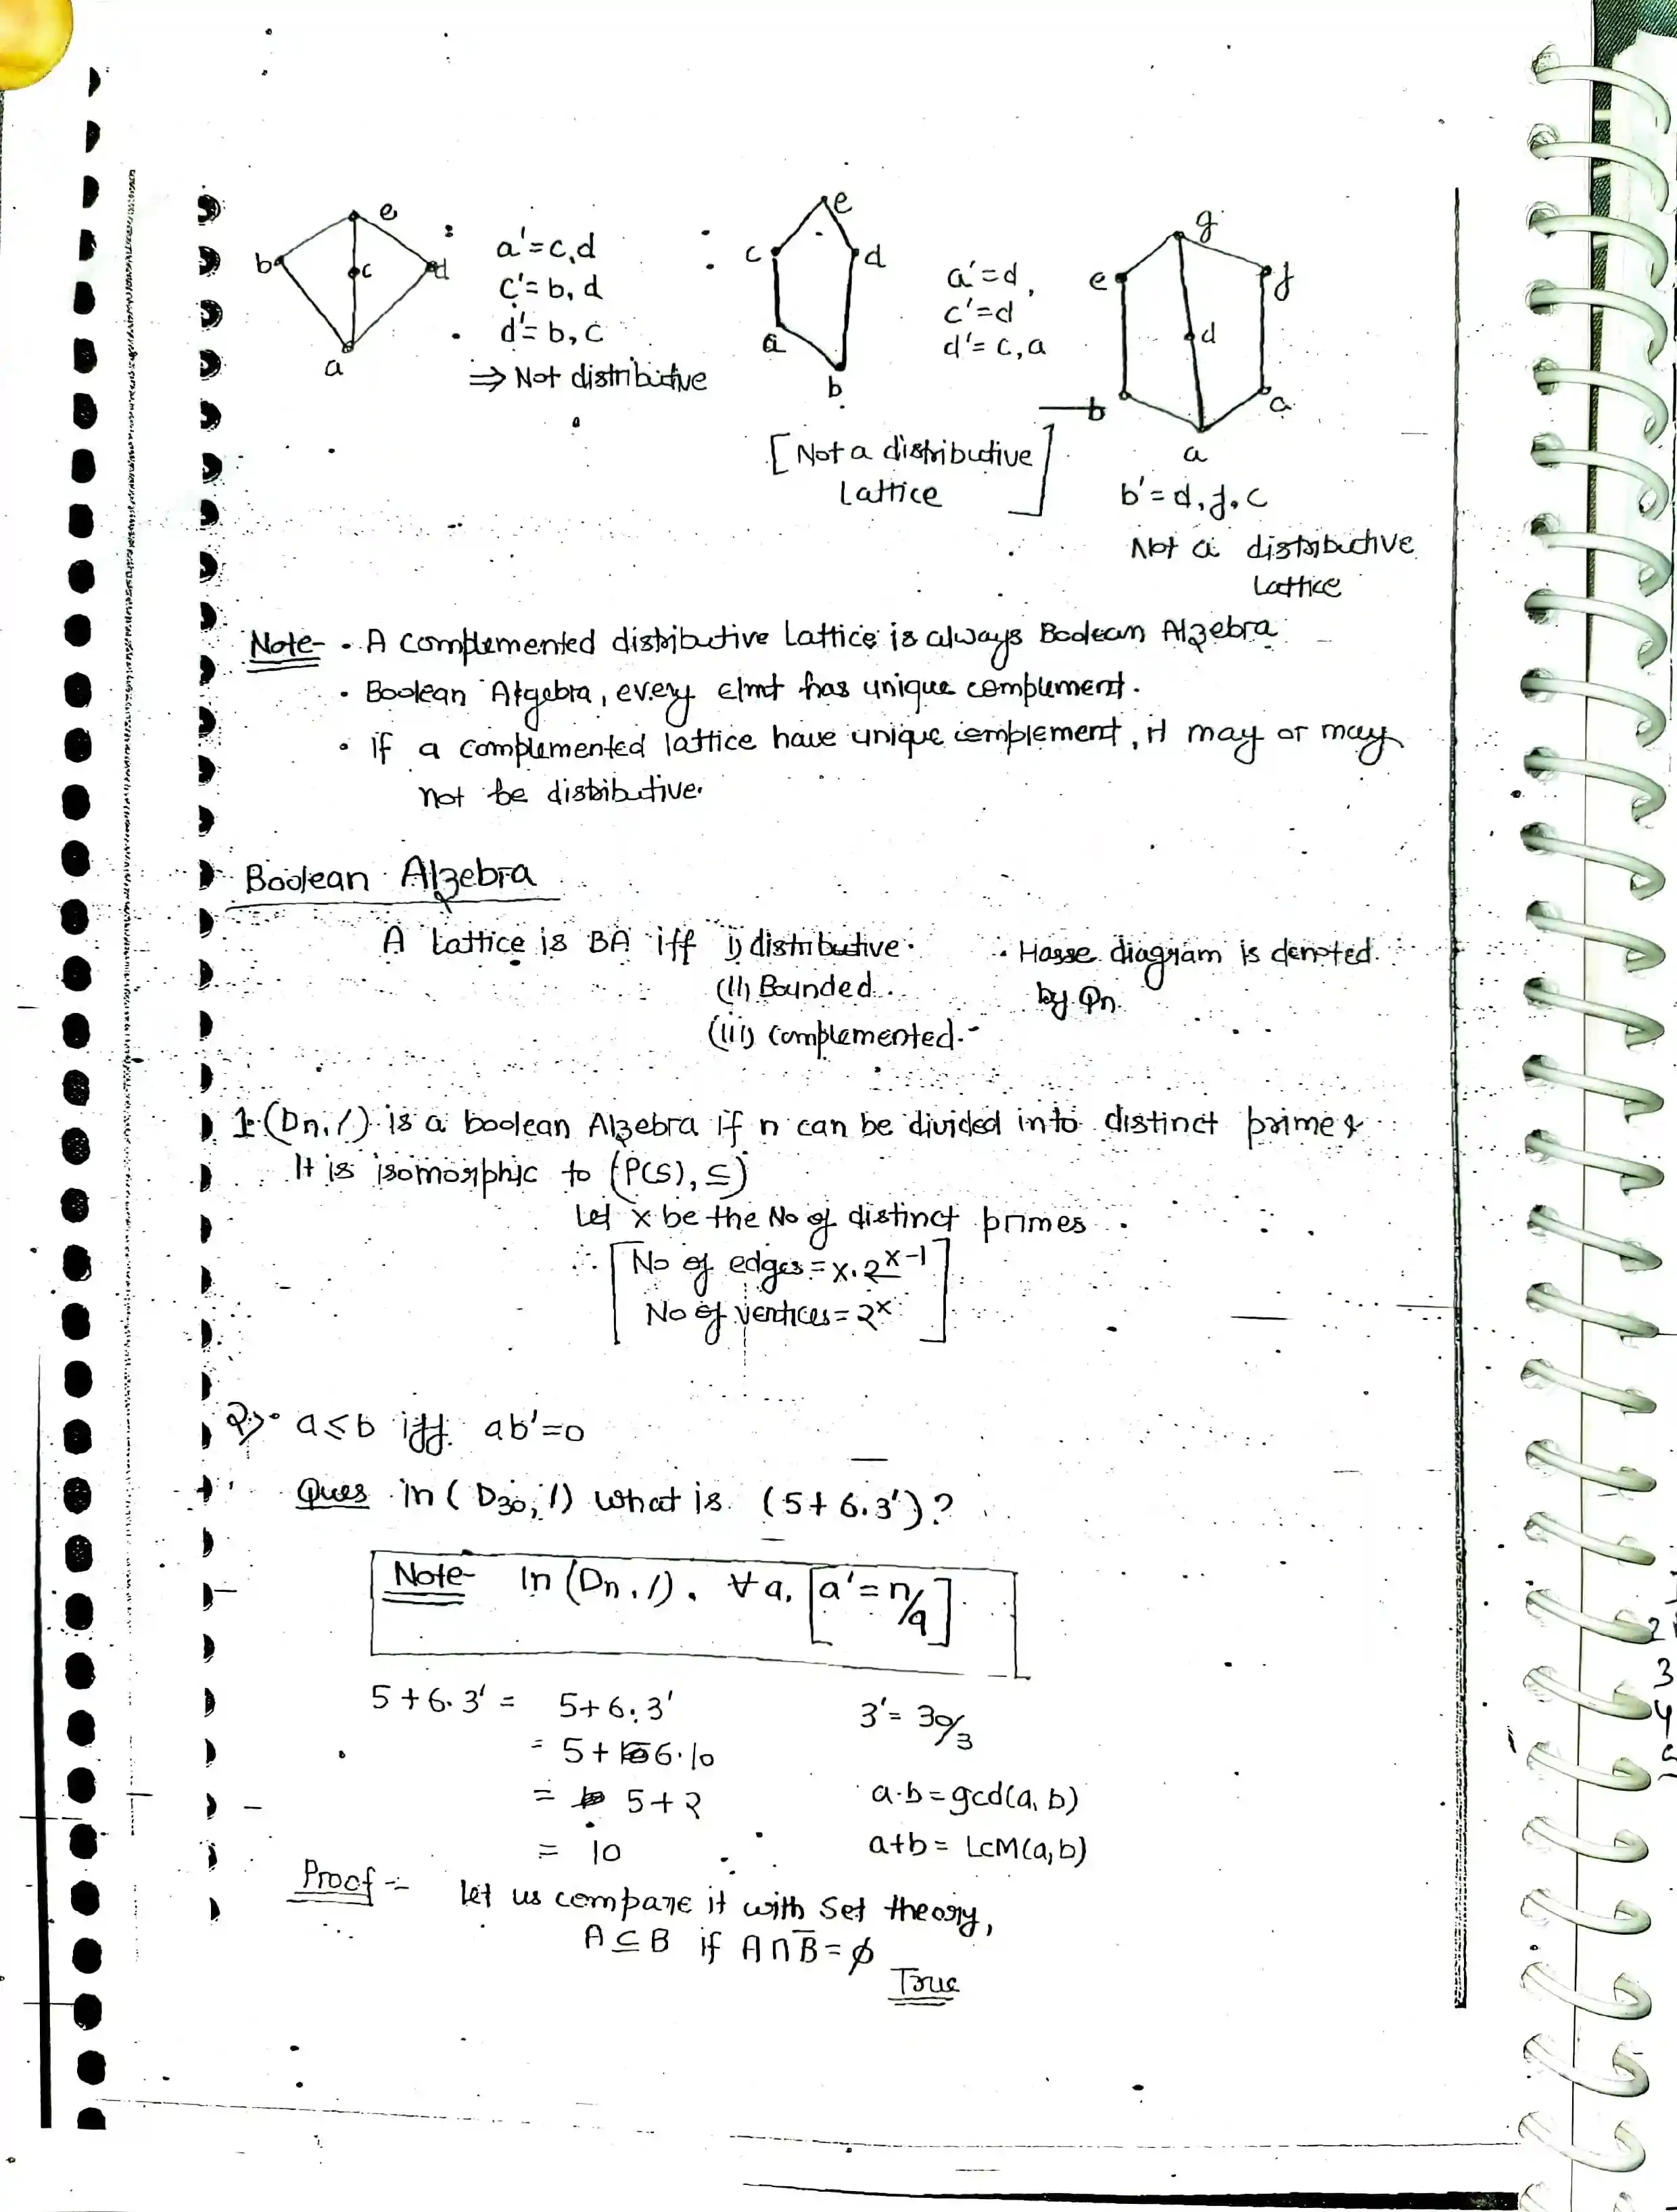 e
b
c
d
a
a'=c,d
c'=b,d
d'=b,c
⇒ Not distributive
e
c
d
a
b
a'=d,
c'=d
d'=c,a
[Not a distributive
Lattice]
g
e
f
d
b
a
a
b'=d,f,c
Not a distributive
Lattice
Note- • A complemented distributive Lattice is always Boolean Algebra
• Boolean Algebra, every elmt has unique complement.
• if a complemented lattice have unique complement, it may or may
not be distributive.
Boolean Algebra
A Lattice is BA iff i) distributive
(ii) Bounded
(iii) complemented.
• Hasse diagram is denoted
by Qn.
1. (Dn, /) is a boolean Algebra if n can be divided into distinct prime &
It is isomorphic to (P(S), ⊆)
Let x be the No of distinct primes
∴ [No of edges = x.2^(x-1)
No of vertices = 2^x]
2) • a≤b iff ab'=0
Ques In (D30, /) what is (5+6.3')?
Note- In (Dn, /), ∀a, [a'=n/a]
5+6.3' = 5+6.3'
= 5+6.10
= 5+2
= 10
3'= 30/3
a.b=gcd(a,b)
a+b= LCM(a,b)
Proof :- let us compare it with Set theory,
A⊆B if A∩B̅=ϕ
True
2
3
4